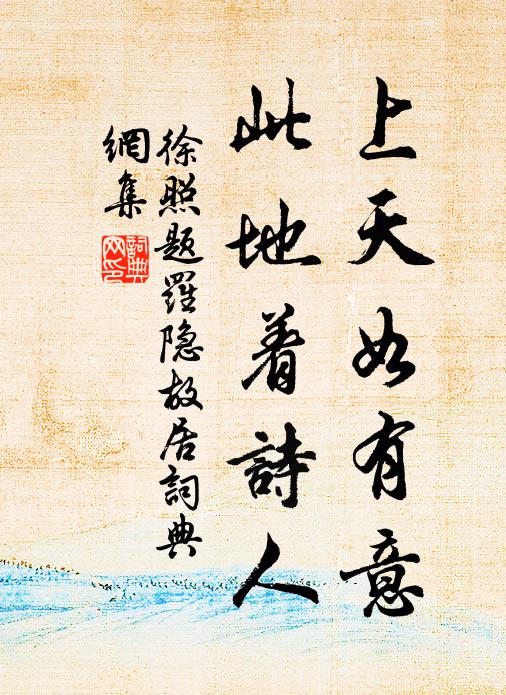 上天如有意
此地着詩人
徐照題羅隐故居詞典
網集
詞典
网印